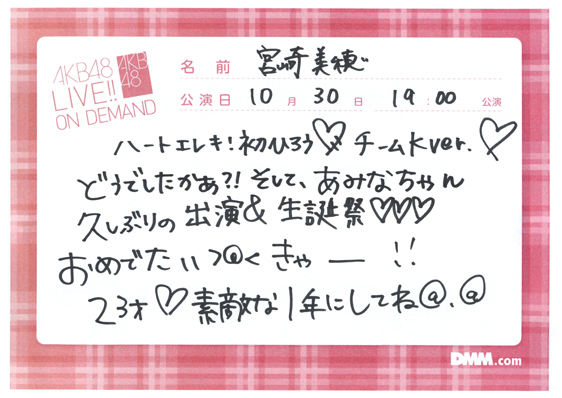 AKB48
LIVE!!
ON DEMAND
AKB
48
名前 宮崎美穂
公演日 10月 30日 19:00 公演
ハートエレキ!初ひろう♡ チームKver.♡
どうでしたかあ?! そして、あみなちゃん
久しぶりの 出演& 生誕祭♡♡♡
おめでたいつ@く きゃー !!
23才♡素敵な1年にしてね@、@
DMM.com